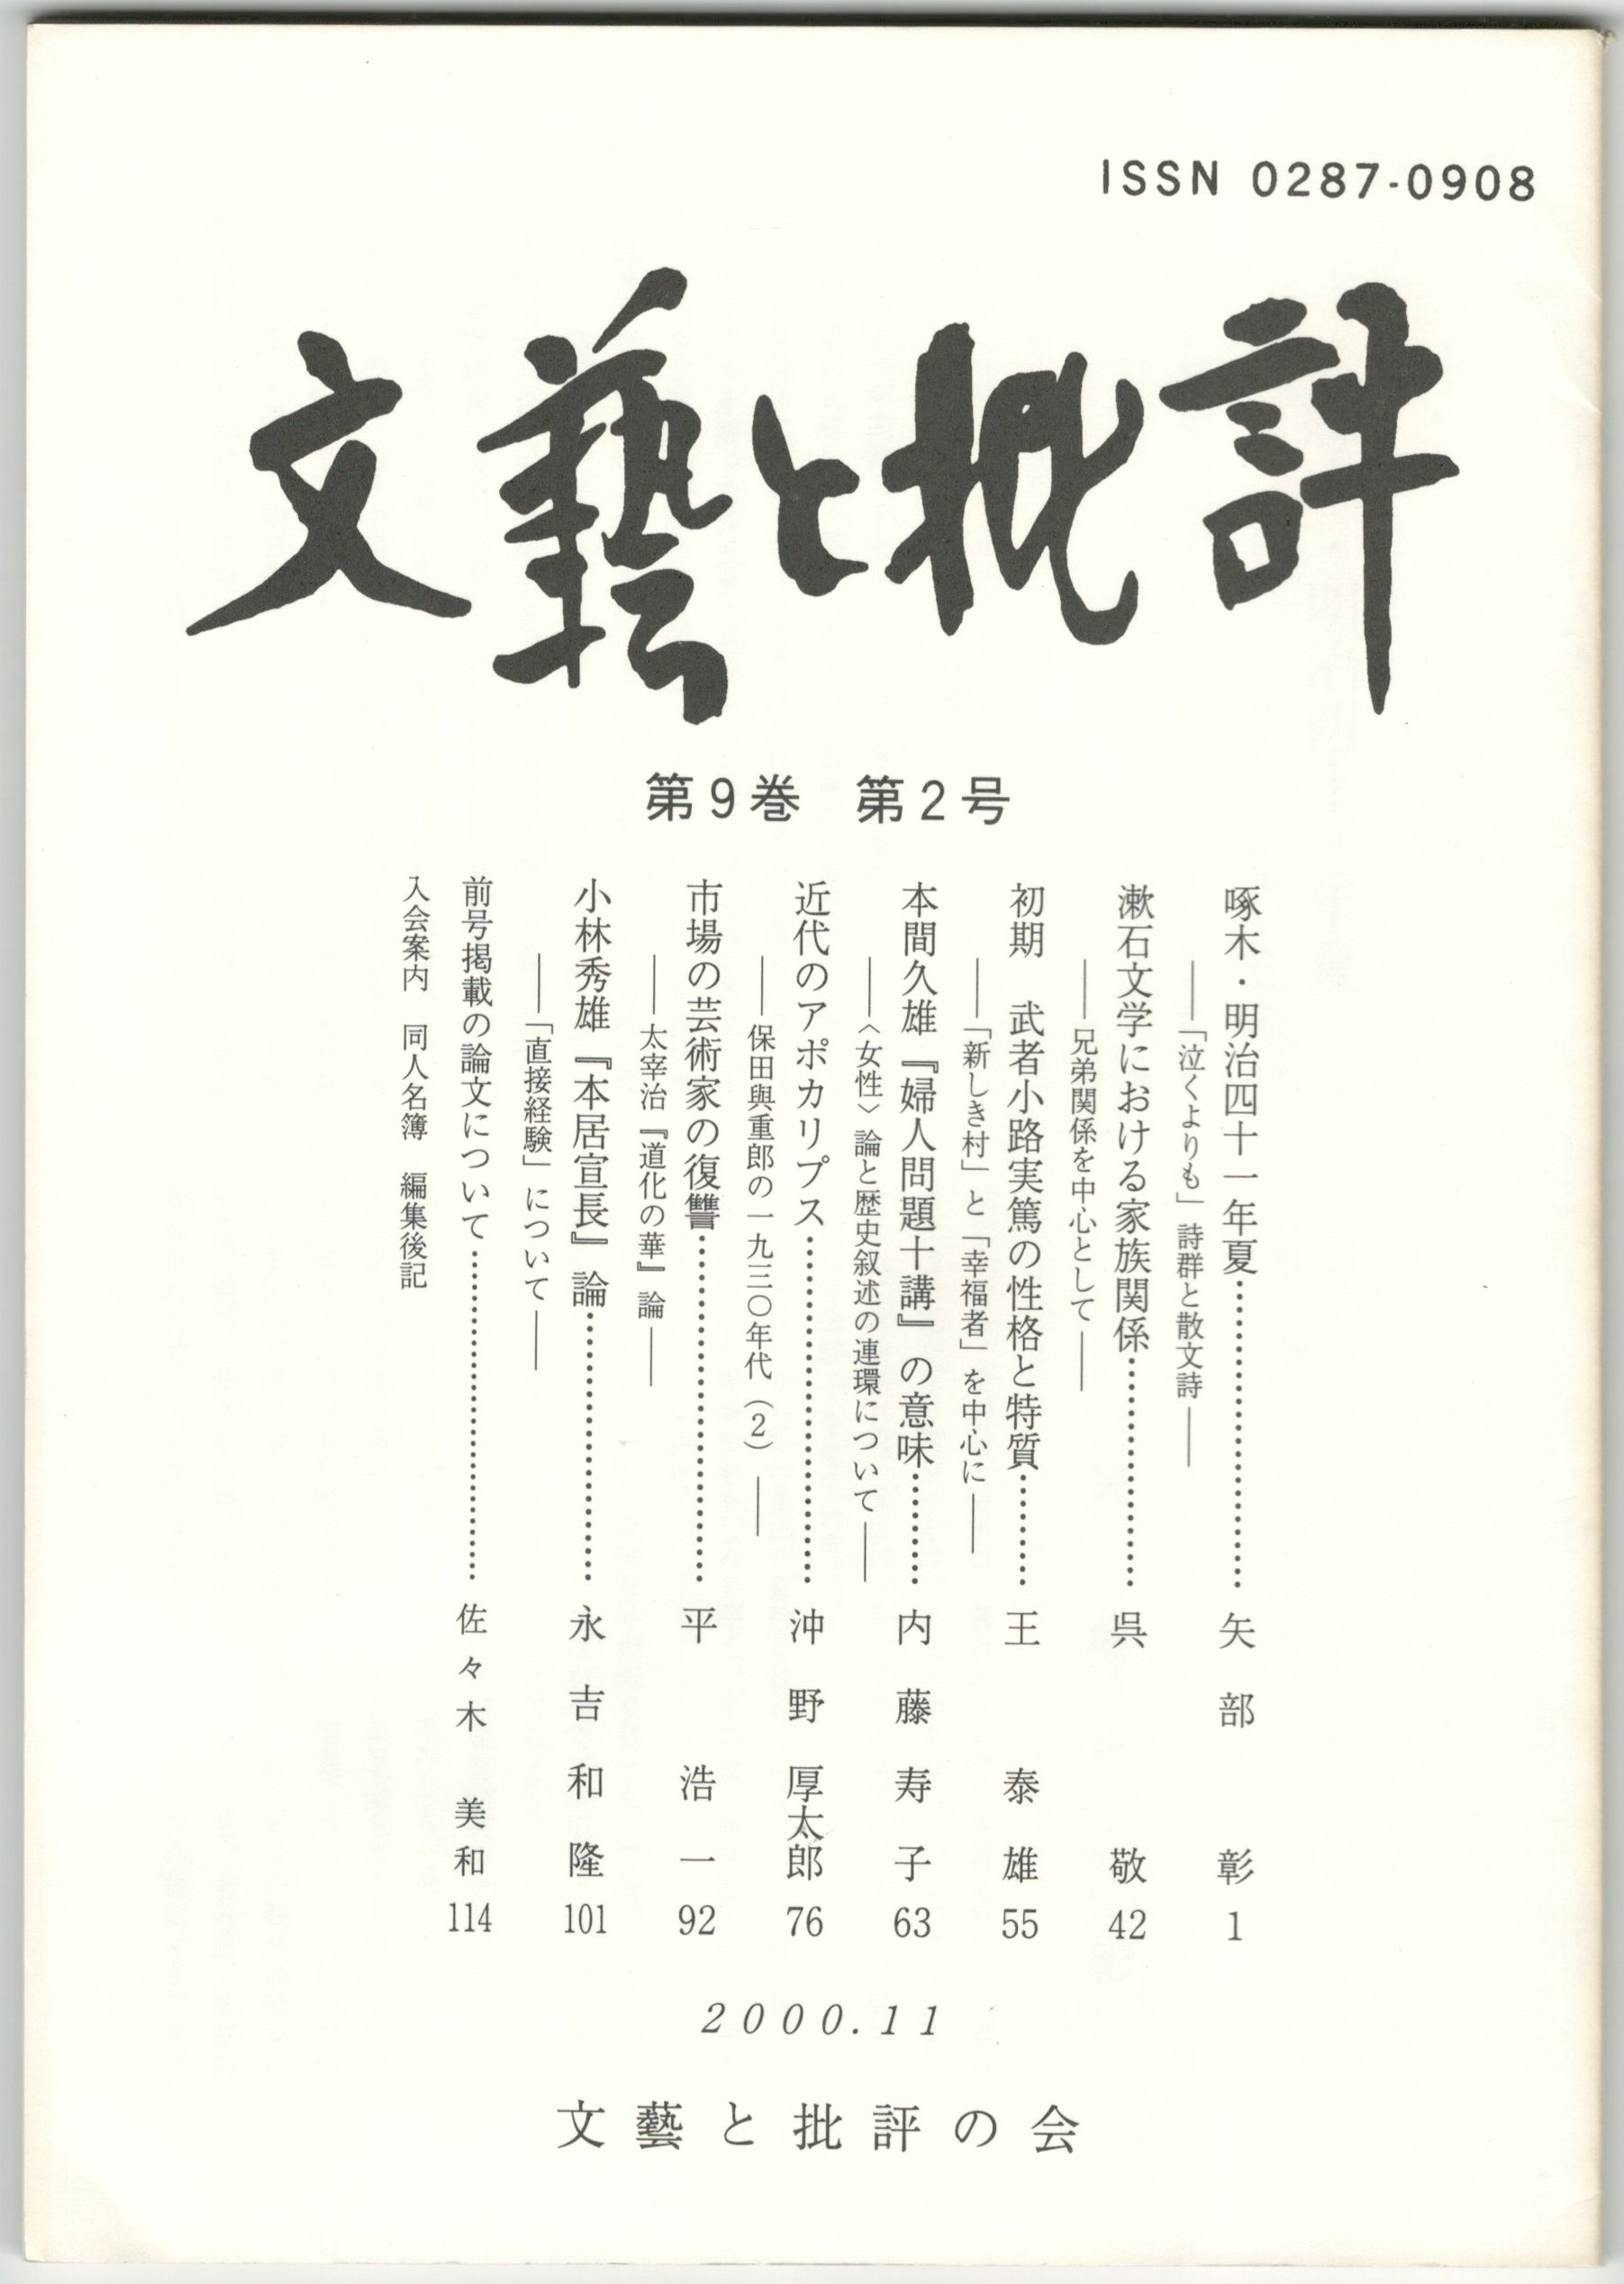 ISSN 0287-0908
文藝と批評
第9巻 第2号
啄木・明治四十一年夏……………………矢部 彰 1
――「泣くよりも」詩群と散文詩――
漱石文学における家族関係………………呉 敬 42
――兄弟関係を中心として――
初期 武者小路実篤の性格と特質………王 泰雄 55
――「新しき村」と「幸福者」を中心に――
本間久雄『婦人問題十講』の意味………内藤寿子 63
――〈女性〉論と歴史叙述の連環について――
近代のアポカリプス………………………沖野厚太郎 76
――保田與重郎の一九三〇年代(2)――
市場の芸術家の復讐………………………平 浩一 92
――太宰治『道化の華』論――
小林秀雄『本居宣長』論…………………永吉和隆 101
――「直接経験」について――
前号掲載の論文について…………………佐々木 美和 114
入会案内 同人名簿 編集後記
2000.11
文藝と批評の会